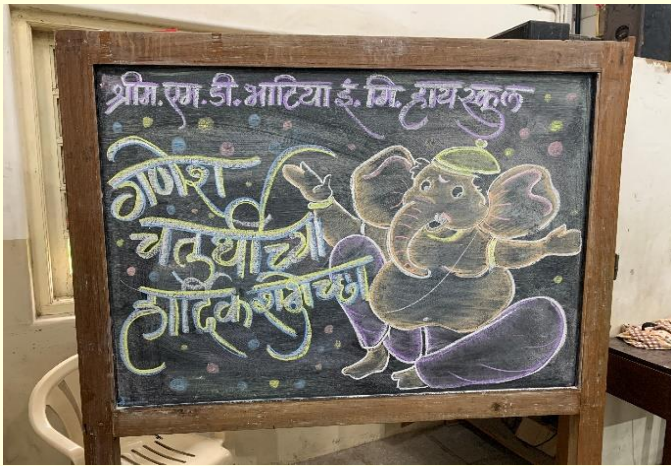 श्रीम. एम. डी. भाटिया इं. मि. हायस्कूल
गणेश
चतुर्थीच्या
हार्दिक शुभेच्छा